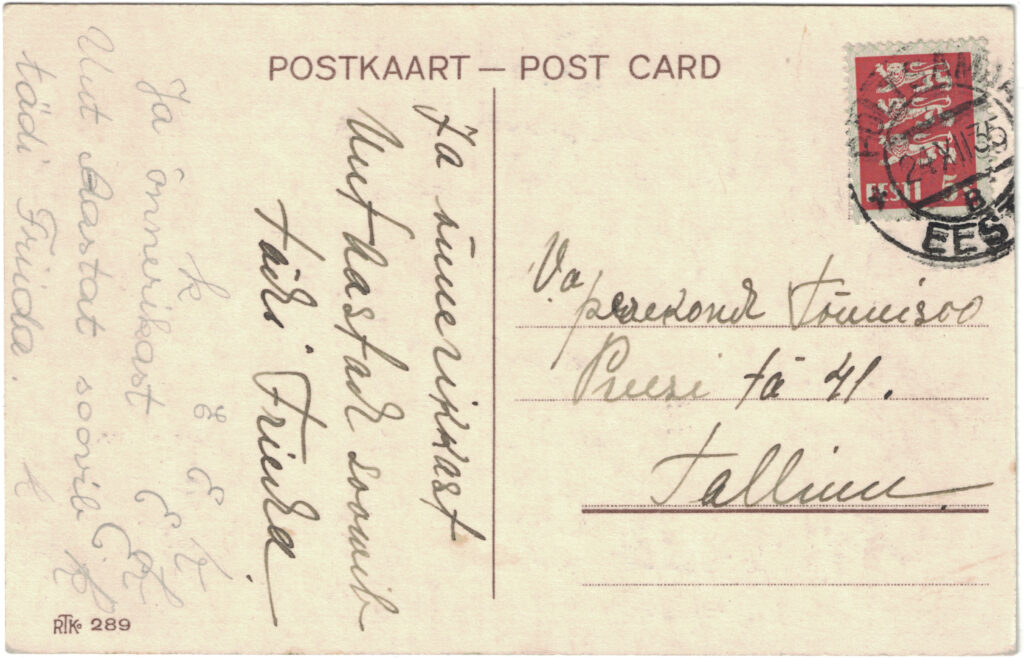 POSTKAART — POST CARD
EESTI 5
24 XII 35
B
EES
Ja õnnerikkast
Uut Aastad soowib
tädi Frieda
Va
perekond Tõnnisoo
Preesi tä 41.
Tallinn
Ja õnnerikast
Uut Aastat soovib
tädi Friida.
RTK 289